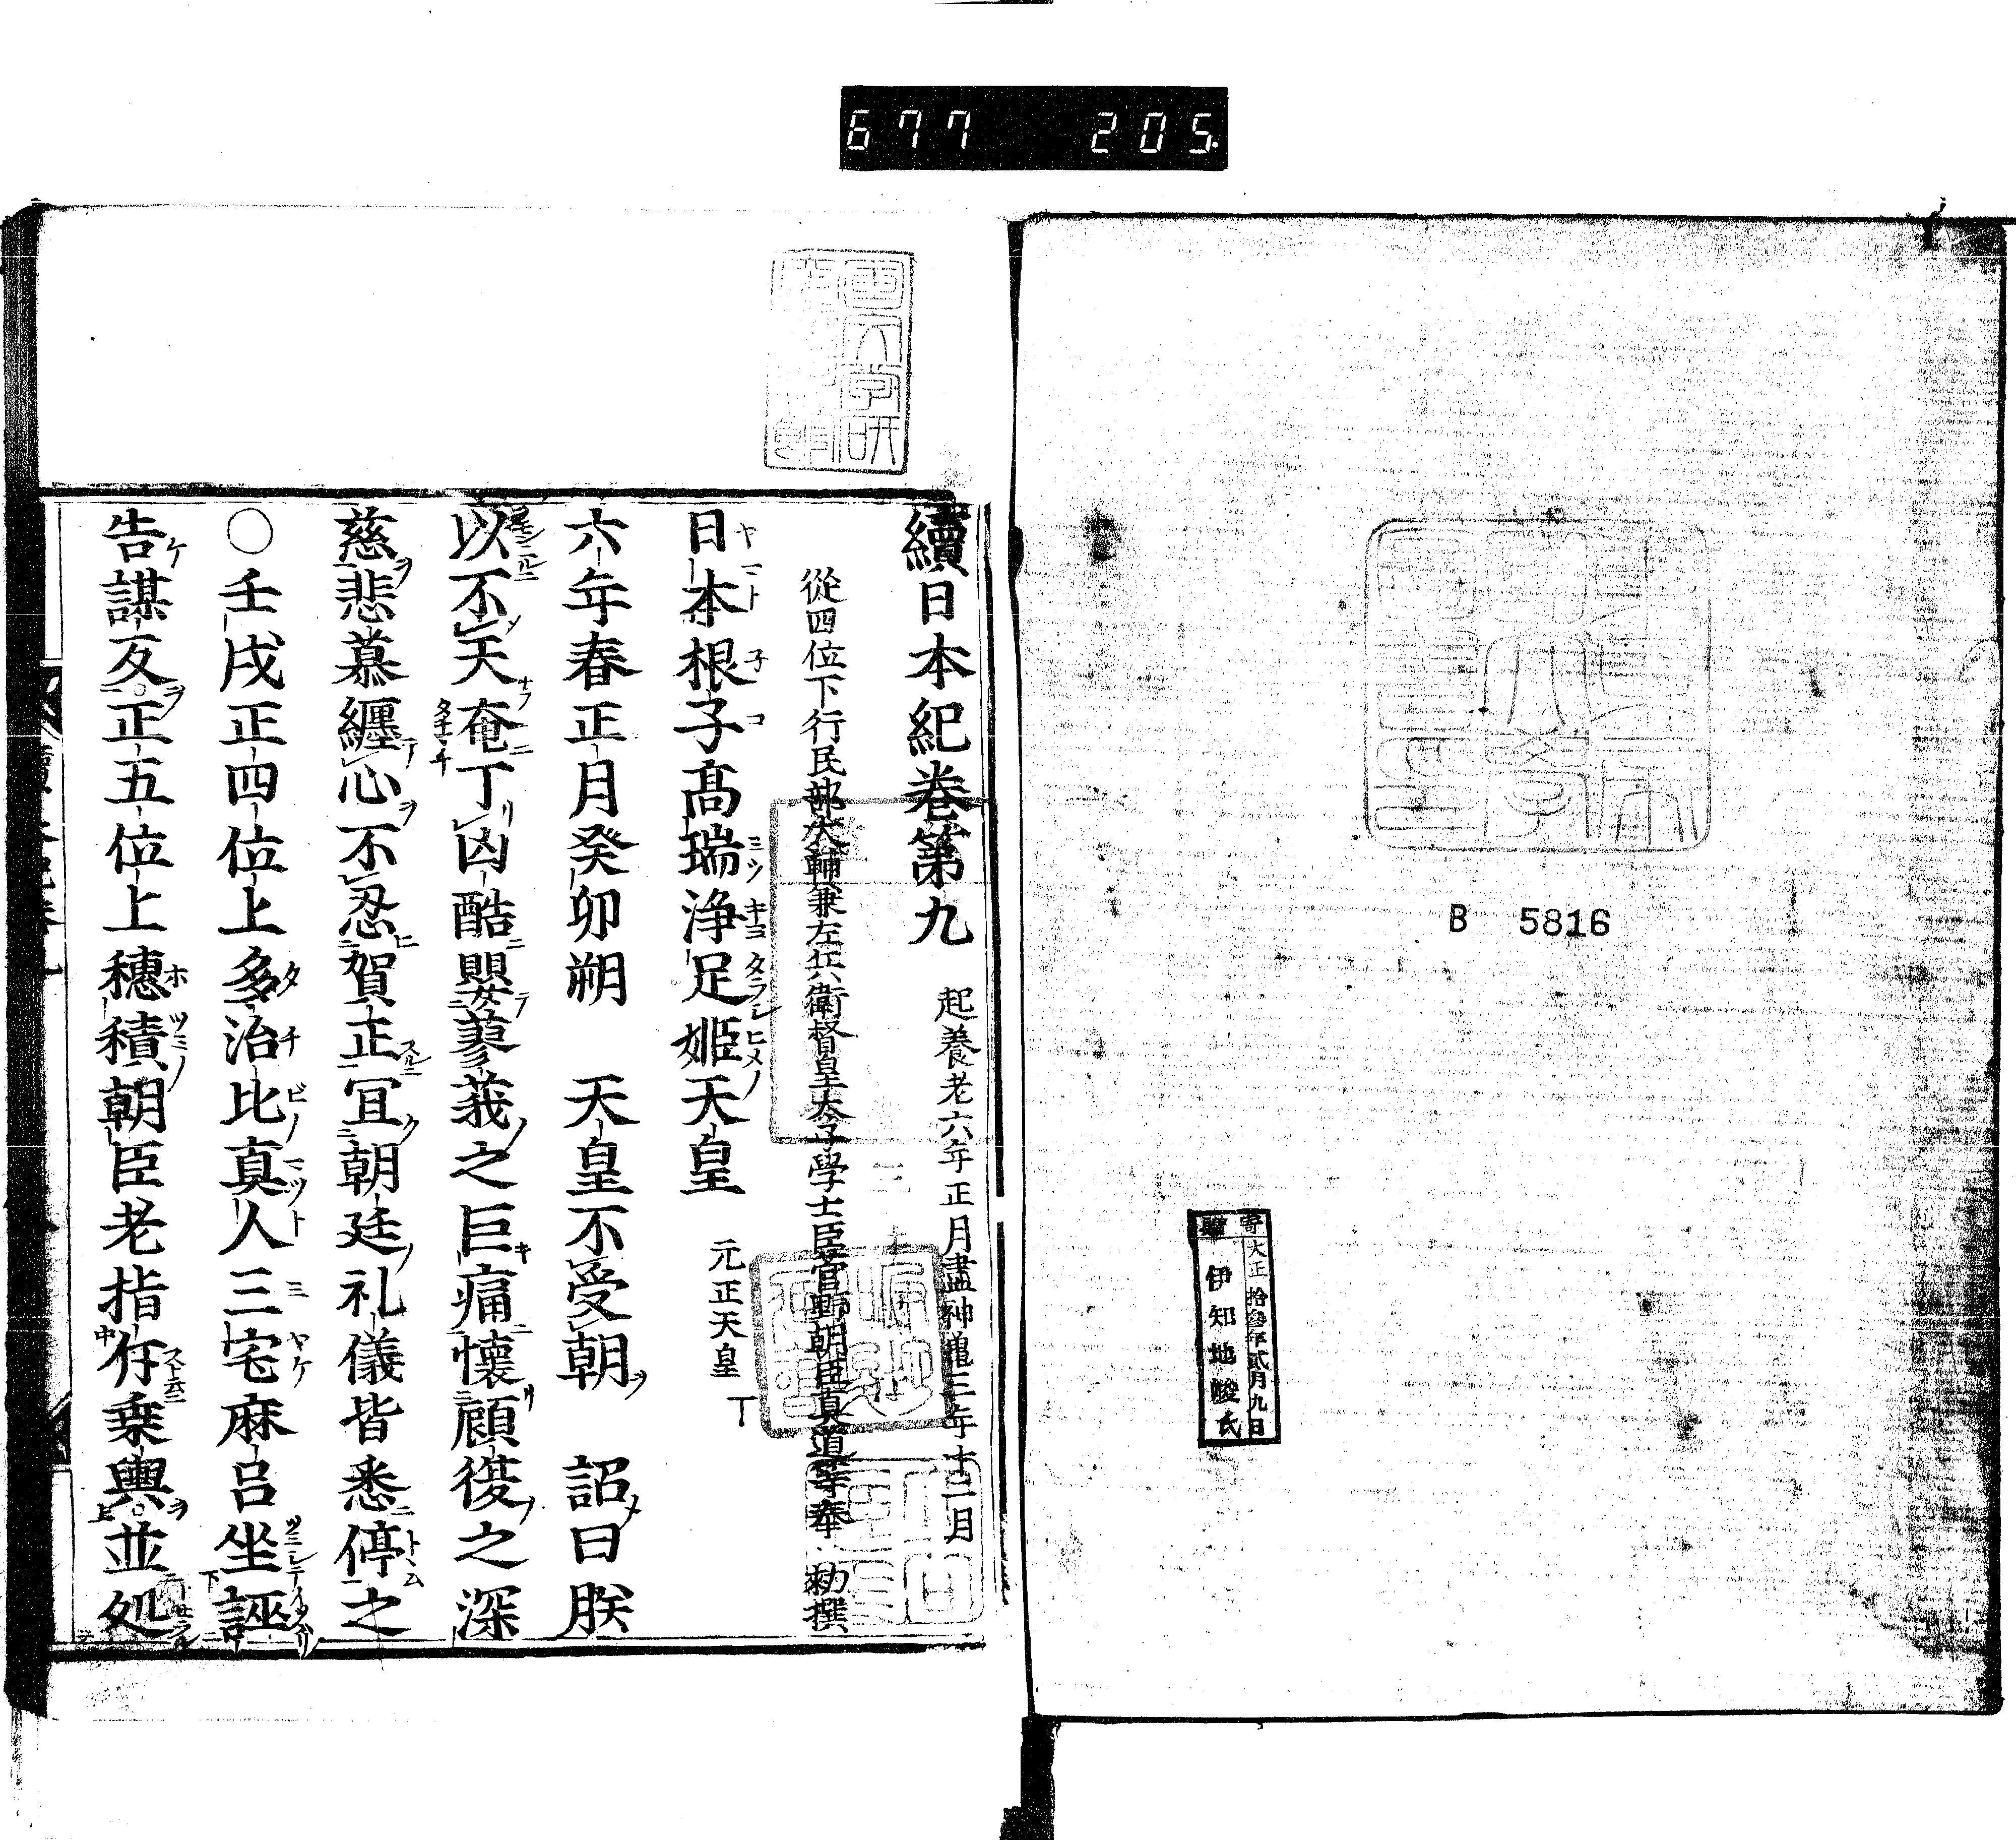 677 205.
B 5816
寄贈
大正拾參年貳月九日
伊知地峻氏
續日本紀卷第九 起養老六年正月盡神龜三年十二月
從四位下行民部大輔兼左兵衛督皇太子學士臣菅野朝臣真道等奉 勅撰
日本根子髙瑞浄足姫天皇 元正天皇
六年春正月癸卯朔 天皇不受朝 詔曰朕
以不天奄丁凶酷嬰蓼莪之巨痛懐顧復之深
慈悲慕纒心不忍賀正冝朝廷礼儀皆悉停之
〇壬戌正四位上多治比真人三宅麻呂坐誣
告謀反正五位上穗積朝臣老指斥乗輿並処